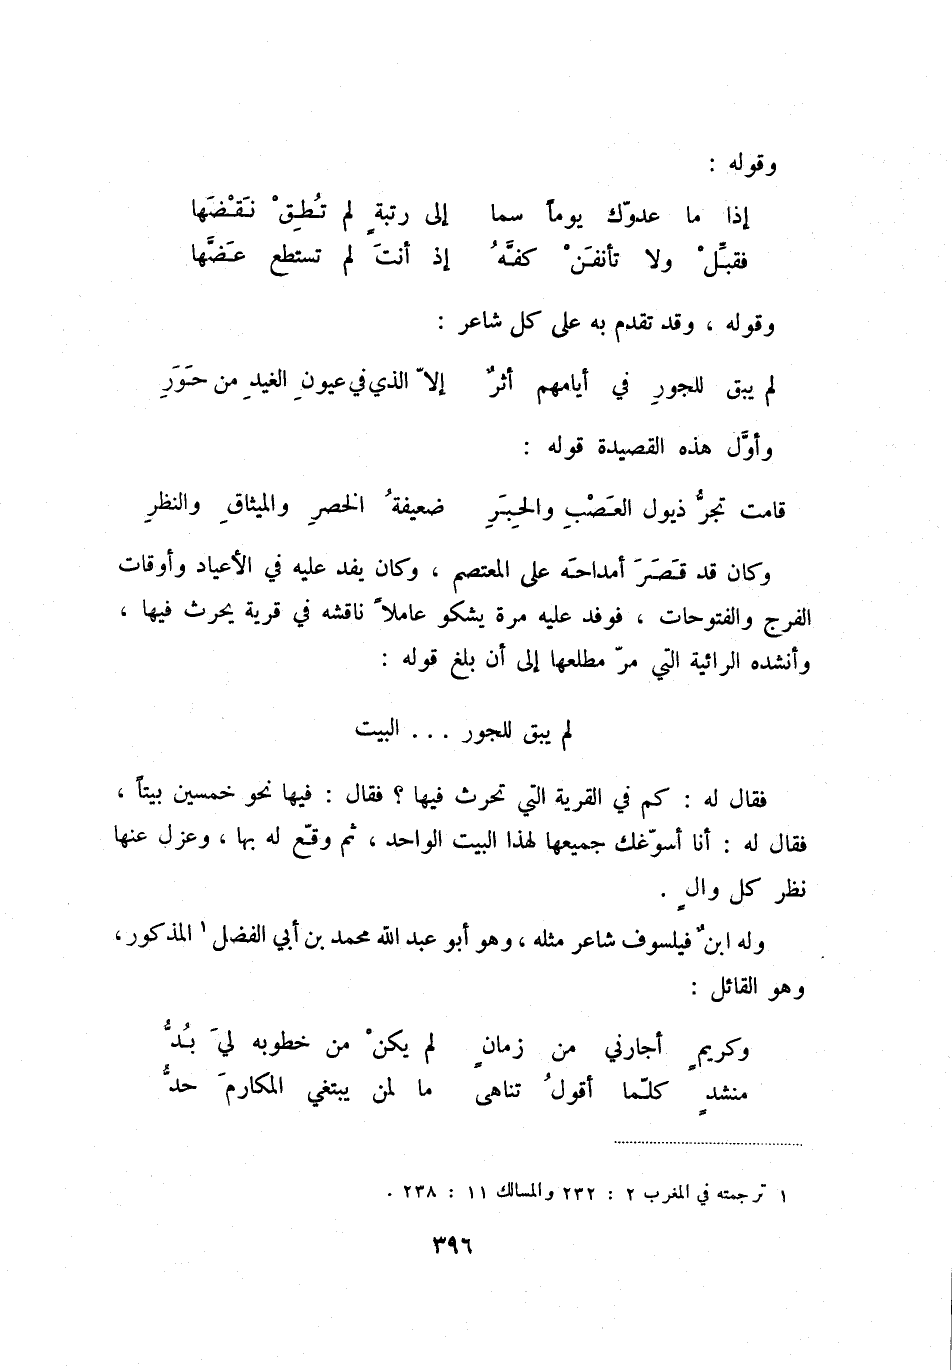 وقوله :
إذا ما عدوّك يوماً سما إلى رتبةٍ لم تُطِقْ نَقْضَها
فقبِّلْ ولا تأنفَنْ كفَّهُ إذ أنتَ لم تستطع عَضَّها
وقوله ، وقد تقدم به على كل شاعر :
لم يبق للجورِ في أيامهم أثرٌ إلاّ الذي في عيونِ الغيدِ من حَوَرِ
وأوَّل هذه القصيدة قوله :
قامت تجرُّ ذيول العَصْبِ والحِبَرِ ضعيفةُ الخصرِ والميثاقِ والنظرِ
وكان قد قَصَرَ أمداحَه على المعتصم ، وكان يفد عليه في الأعياد وأوقات
الفرج والفتوحات ، فوفد عليه مرة يشكو عاملاً ناقشه في قرية يحرث فيها ،
وأنشده الرائية التي مرّ مطلعها إلى أن بلغ قوله :
لم يبق للجور . . . البيت
فقال له : كم في القرية التي تحرث فيها ؟ فقال : فيها نحو خمسين بيتاً ،
فقال له : أنا أسوّغك جميعها لهذا البيت الواحد ، ثم وقّع له بها ، وعزل عنها
نظر كل والٍ .
وله ابنٌ فيلسوف شاعر مثله ، وهو أبو عبد الله محمد بن أبي الفضل ١ المذكور ،
وهو القائل :
وكريمٍ أجارني من زمانٍ لم يكنْ من خطوبه ليَ بُدُّ
منشدٍ كلّما أقولُ تناهى ما لمن يبتغي المكارمَ حدُّ
١ ترجمته في المغرب ٢ : ٢٣٢ والمسالك ١١ : ٢٣٨ .
٣٩٦